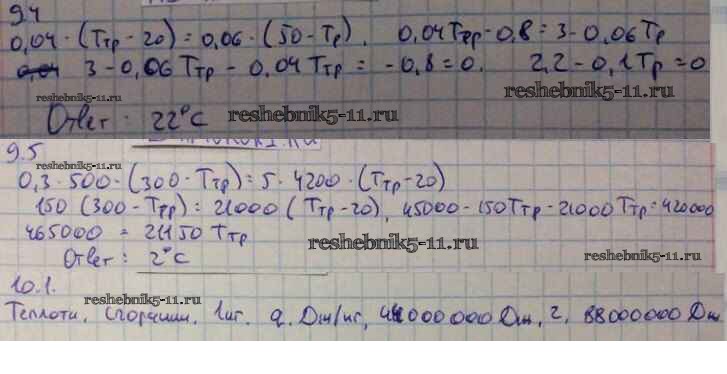 9.4
0,04·(Tтр-20)=0,06·(50-Tр), 0,04Tтр-0,8=3-0,06Tр
3-0,06Tтр-0,04Tтр=-0,8=0. 2,2-0,1Tр=0
reshebnik5-11.ru
Ответ: 22°C reshebnik5-11.ru
9.5
reshebnik5-11.ru
0,3·500·(300-Tтр)=5·4200·(Tтр-20)
150(300-Tтр)=21000(Tтр-20), 45000-150Tтр-21000Tтр=420000
465000=21150Tтр reshebnik5-11.ru
Ответ: 2°C
10.1.
reshebnik5-11.ru
Теплоти, сгорании, 1кг. q. Дж/кг, 44000000Дж, 2, 88000000Дж